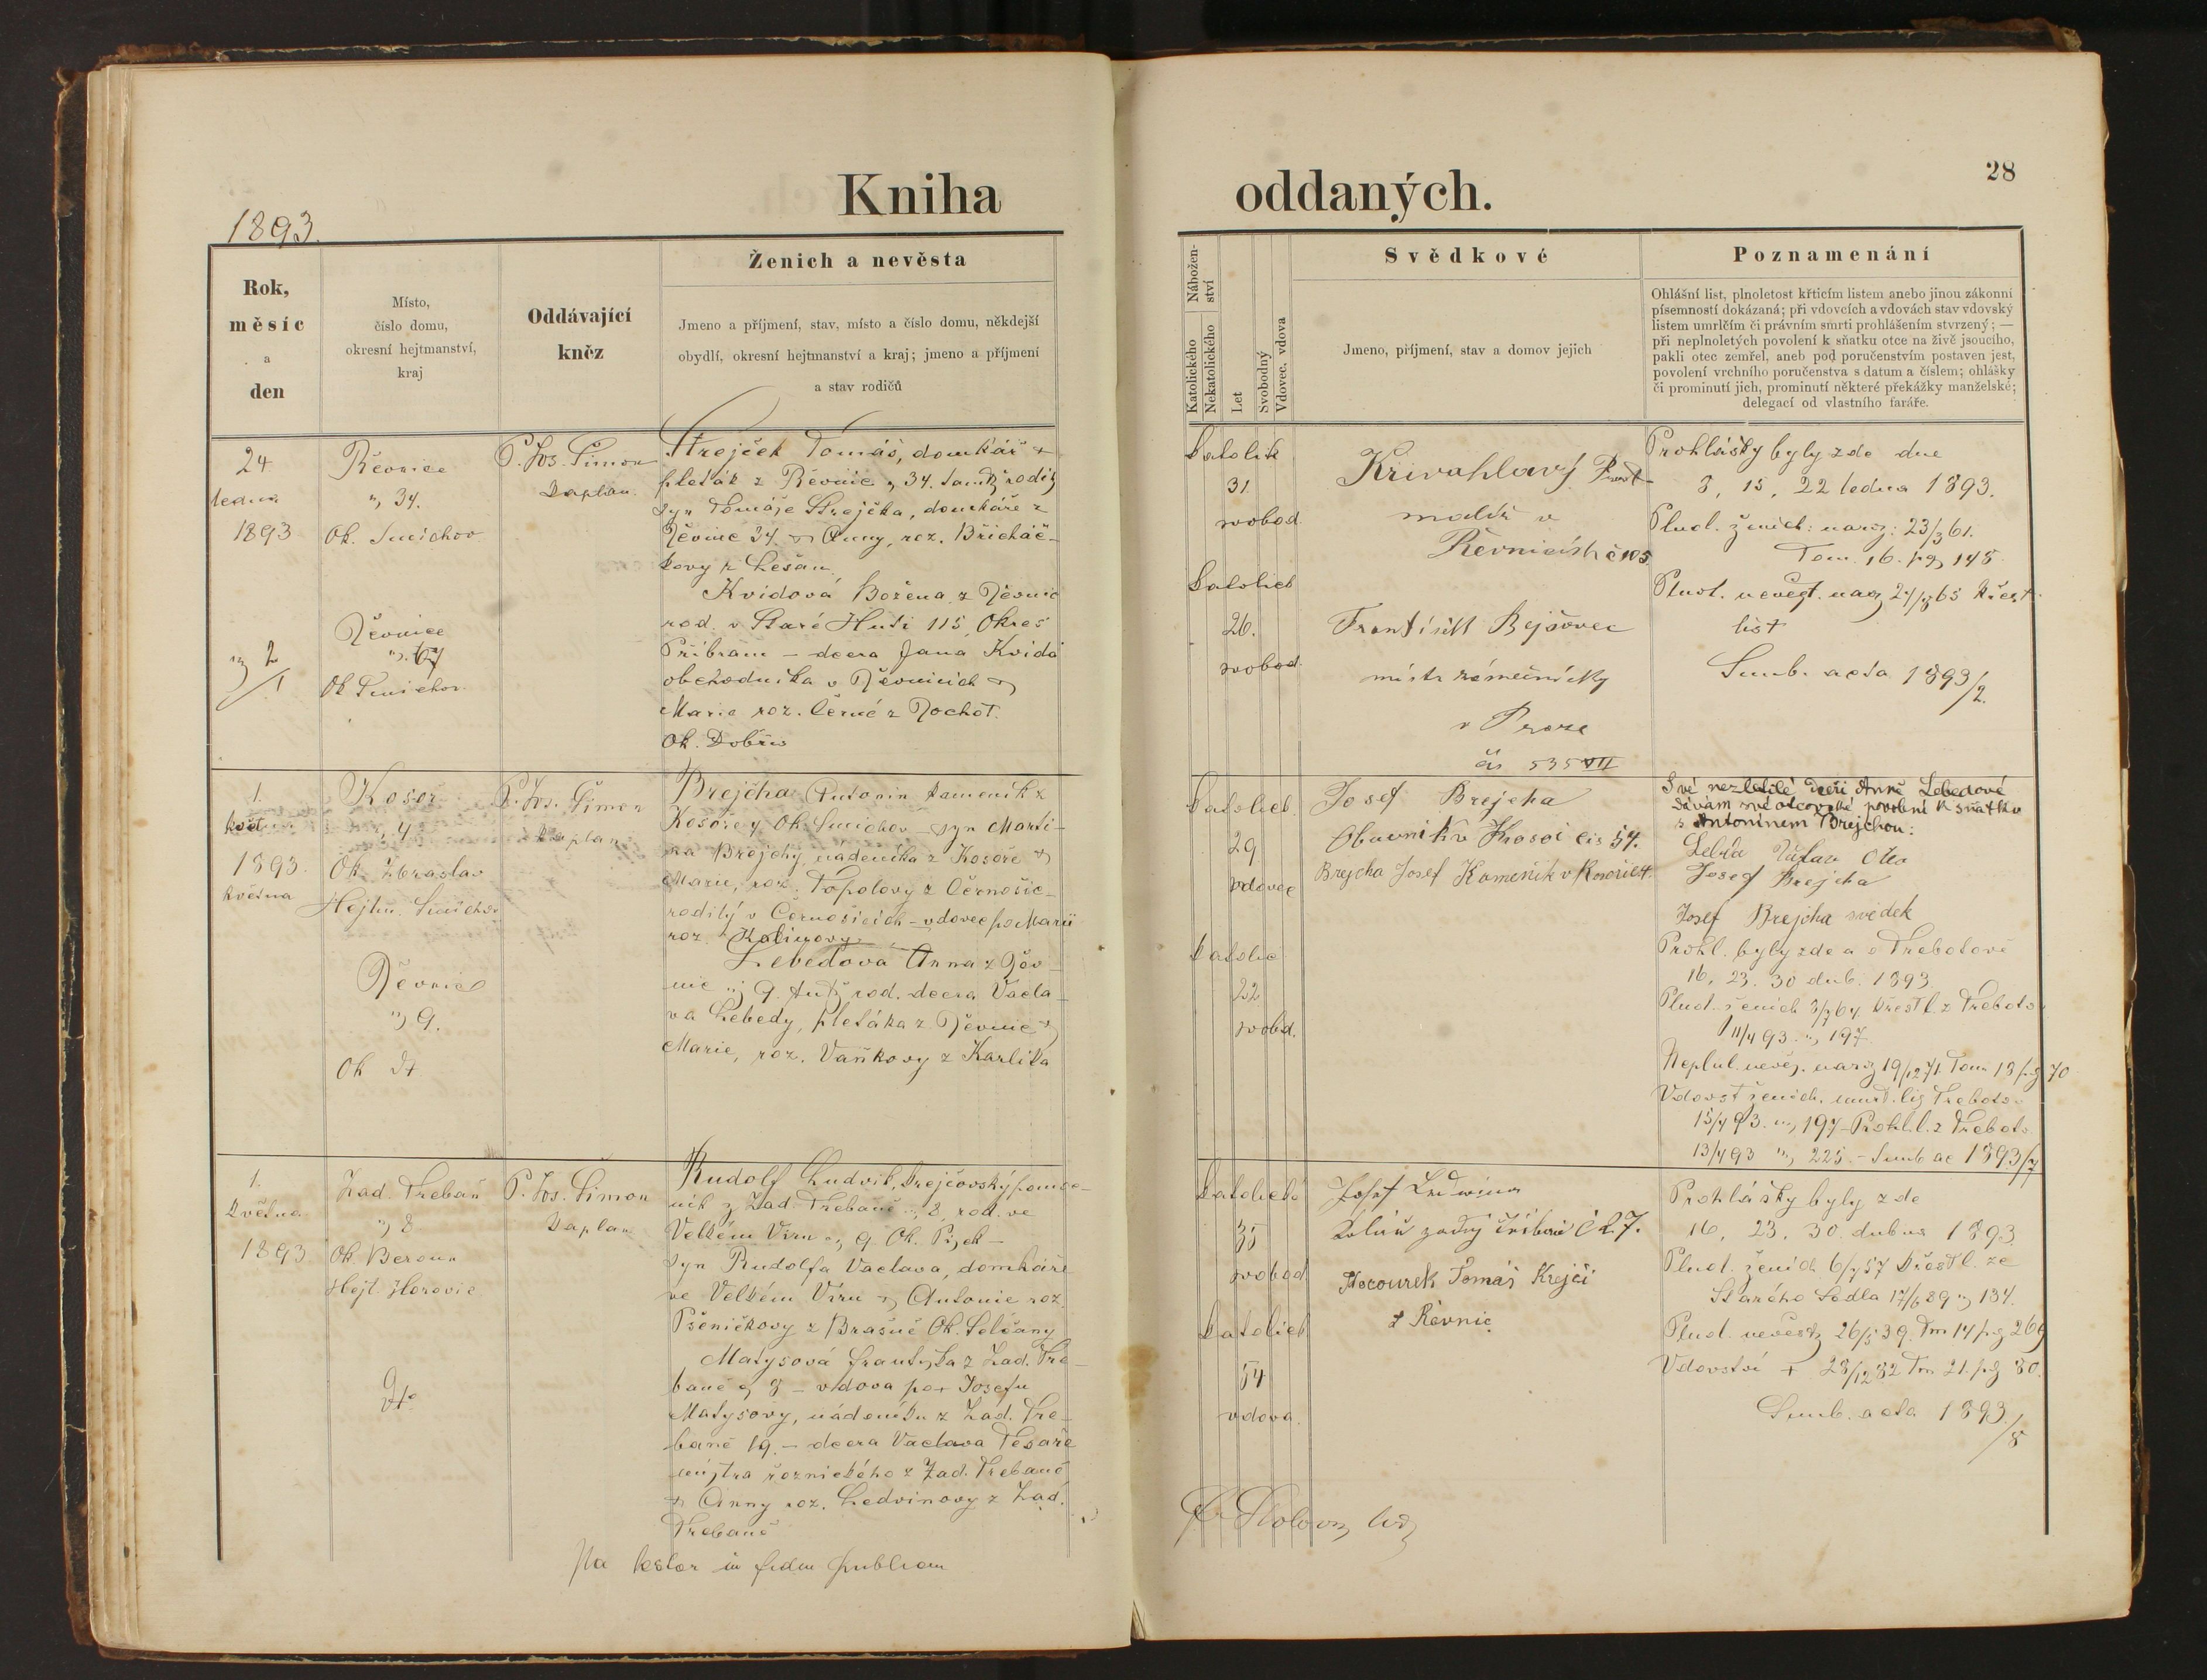 Kniha
oddaných.
28
1893.
Rok,
měsíc
a
den
Místo,
číslo domu,
okresní hejtmanství,
kraj
Oddávající
kněz
Ženich a nevěsta
Jmeno a příjmení, stav, místo a číslo domu, někdejší
obydlí, okresní hejtmanství a kraj; jmeno a příjmení
a stav rodičů
Nábožen-
ství
Katolického
Nekatolického
Let
Svobodný
Vdovec. vdova
Svědkové
Jmeno, příjmení, stav a domov jejich
Poznamenání
Ohlášní list, plnoletost křticím listem anebo jinou zákonní
písemností dokázaná; při vdovcích a vdovách stav vdovský
listem umrlčím či právním smrti prohlášením stvrzený; —
při neplnoletých povolení k sňatku otce na živě jsoucího,
pakli otec zemřel, aneb pod poručenstvím postaven jest,
povolení vrchního poručenstva s datum a číslem; ohlášky
či prominutí jich, prominutí některé překážky manželské;
delegací od vlastního faráře.
24.
ledna
1893
Řevnice
34.
Ok. Smíchov
Řevnice
67
Ok Smichov.
P. Jos. Šimon
Kaplan.
Strejček Tomáš, domkář &
pleták z Řevnic 34. tamtž rodilý
syn Tomáše Strejčka, domkáře z
Řevnic 34. & Anny, roz. Břicháč-
kovy z Lešan.
Kvidová Božena z Řevnic
rod. v Staré Huti 115, Okres
Příbram – dcera Jana Kvida
obchodníka v Řevnicích &
Marie roz. Černé z Rochot.
Ok. Dobřis
Katolík
31.
svobod.
Katolick
26.
svobod.
Krivahlavý
malíř v
Řevnicích č 105
František Bejšovec
místr zámečnický
v Praze
čís 535 VII
Prohlášky byly zde dne
8, 15, 22 ledna 1893.
Plnol. ženich: naroz: 23/3 61.
Tom. 16. pg 145
list
Sub. acta 1893/2.
1.
květ
1893.
Května
Kosoř
4
Ok. Zbraslav
Hejtm. Smíchov
Řevnice
9.
Ok dt
P. Jos. Šimon
Kaplan
Brejcha Antonin kameník z
Kosoře 4 Ok. Smichov – syn Marti-
na Brejchy, nádeníka z Kosoře &
Marie, roz. Topolovy z Černošic-
rodilý v Černošicích – vdovec po Marii
roz. Kalinovy.
Lebedova Anna z Řev-
nic 9. tutž rod. dcera Václa-
va Lebedy, pletáka z Řevnic &
Marie, roz. Vaňkovy z Karlíka
Katolick
29
vdovec
Katolic
22
svobd.
Josef Brejcha
Obuvník v Kosoi čis 54.
Brejcha Josef Kameník v Kosoři č 4.
Své nezletilé dceři Anně Lebedové
dávám své otcovské povolení k sňatku
s Antonínem Brejchou:
Josef Brejcha
Josef Brejcha svědek
Prohl. byly zde a v Třebotově
16, 23. 30 dub. 1893.
Plnol. ženich 3/7 64. Křestl. z Třeboto
11/4 93. 197.
Neplnl. nevěs. naroz 19/12 71. Tom 18 pg 70
Vdovst ženich. umrt. lis Třeboto
15/4 93. 197 – Prohl. l. z Třeboto
13/4 93 225. – Sub ac 1893/7
1.
Května
1893
Zad. Třebaň
8
Ok. Beroun
Hejt. Hořovic
dto
P. Jos. Šimon
Kaplan
Rudolf Ludvík, krejčovský pomoc-
ník z Zad. Třebaně 8, rod. ve
Velkém Viru 9 Ok. Písek –
Syn Rudolfa Václava, domkáře
ve Velkém Viru & Antonie roz.
Pšeničkovy z Brašné Ok. Selčany
Matysová Františka z Zad. Tře-
baně 8 – vdova po + Josefu
Matysovy, nádeníku z Zad. Tře-
baně 19. – dcera Václava Tesaře
mistra řeznického z Zad. Třebaně
& Anny roz. Ledvinovy z Zad.
Třebaně
Katolické
35
svobod
Katolick
54
vdova.
Josef Ledwina
Kolář zadní Třibani č 27.
Kocourek Tomáš Krejčí
z Řevnic
Prohlášky byly zde
16, 23, 30. dubna 1893
Plnol. ženich. 6/7 57 Křestl. ze
Starého Sedla 17/6 89 134.
Plnol. nevěsty 26/5 39. Tm 14 pg 269
Vdovství + 28/12 82 Tm 21. pg 80.
Sub. acta 1893./8
in fidem publicam